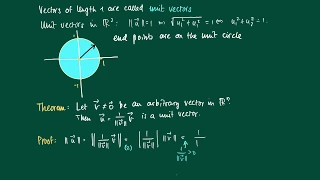 Vectors of length 1 are called unit vectors
Unit vectors in ℝ²: ‖u⃗‖=1 ⇔ √(u₁²+u₂²) = 1 ⇔ u₁²+u₂² = 1.
end points are on the unit circle
1
-1
Theorem: Let v⃗ ≠ 0⃗ be an arbitrary vector in ℝⁿ.
Then u⃗ = 1/‖v⃗‖ v⃗ is a unit vector.
Proof: ‖u⃗‖ = ‖1/‖v⃗‖ v⃗‖ = |1/‖v⃗‖| ‖v⃗‖ = 1/‖
1/‖v⃗‖ >0